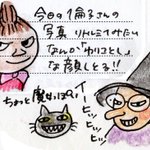 今日の倫子さんの
写真 リトルミイみたい
なんか「わりことし」
な顔しとる!!
ちょっと魔女っぽい
イ
ヒッ
ヒッ
ヒッ